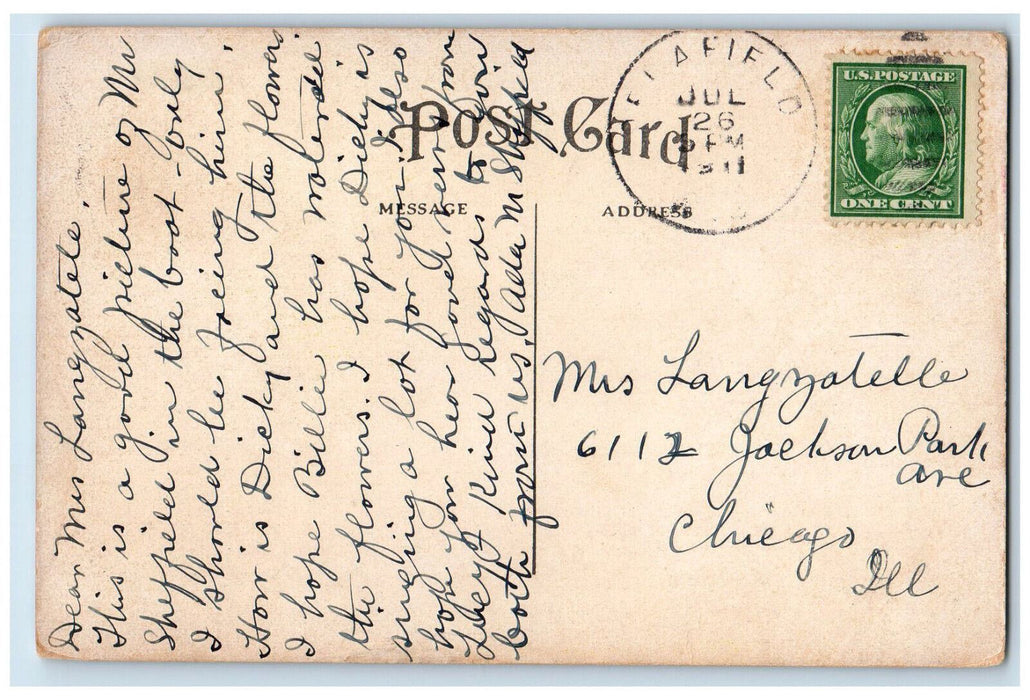 Post Card
MESSAGE
ADDRESS
DELAFIELD
JUL
26
PM
1911
U.S. POSTAGE
ONE CENT
Dear Mrs Langzatele.
This is a good picture of Mr
Sheffield in the boat - only
I should be facing him.
How is Dicky and the flowers.
I hope Billie has watered
the flowers. I hope Dicky is
singing a lot for you. I also
hope you hear good news from
Lucy. Kind regards to you
both from us. Ada M Sheffield
Mrs Langzatelle
6112 Jackson Park
ave
Chicago
Ill